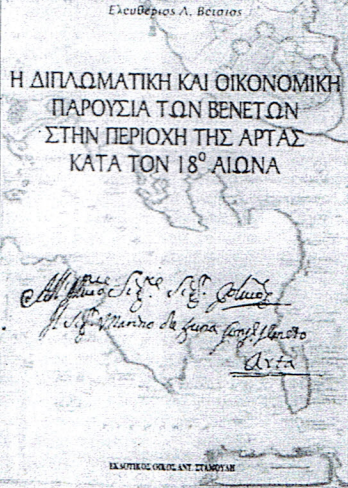 Ελευθέριος Λ. Βέτσιος
Η ΔΙΠΛΩΜΑΤΙΚΗ ΚΑΙ ΟΙΚΟΝΟΜΙΚΗ
ΠΑΡΟΥΣΙΑ ΤΩΝ ΒΕΝΕΤΩΝ
ΣΤΗΝ ΠΕΡΙΟΧΗ ΤΗΣ ΑΡΤΑΣ
ΚΑΤΑ ΤΟΝ 18º ΑΙΩΝΑ
Marino de
Arta
ΕΚΔΟΤΙΚΟΣ ΟΙΚΟΣ ΑΝΤ. ΣΤΑΜΟΥΛΗ